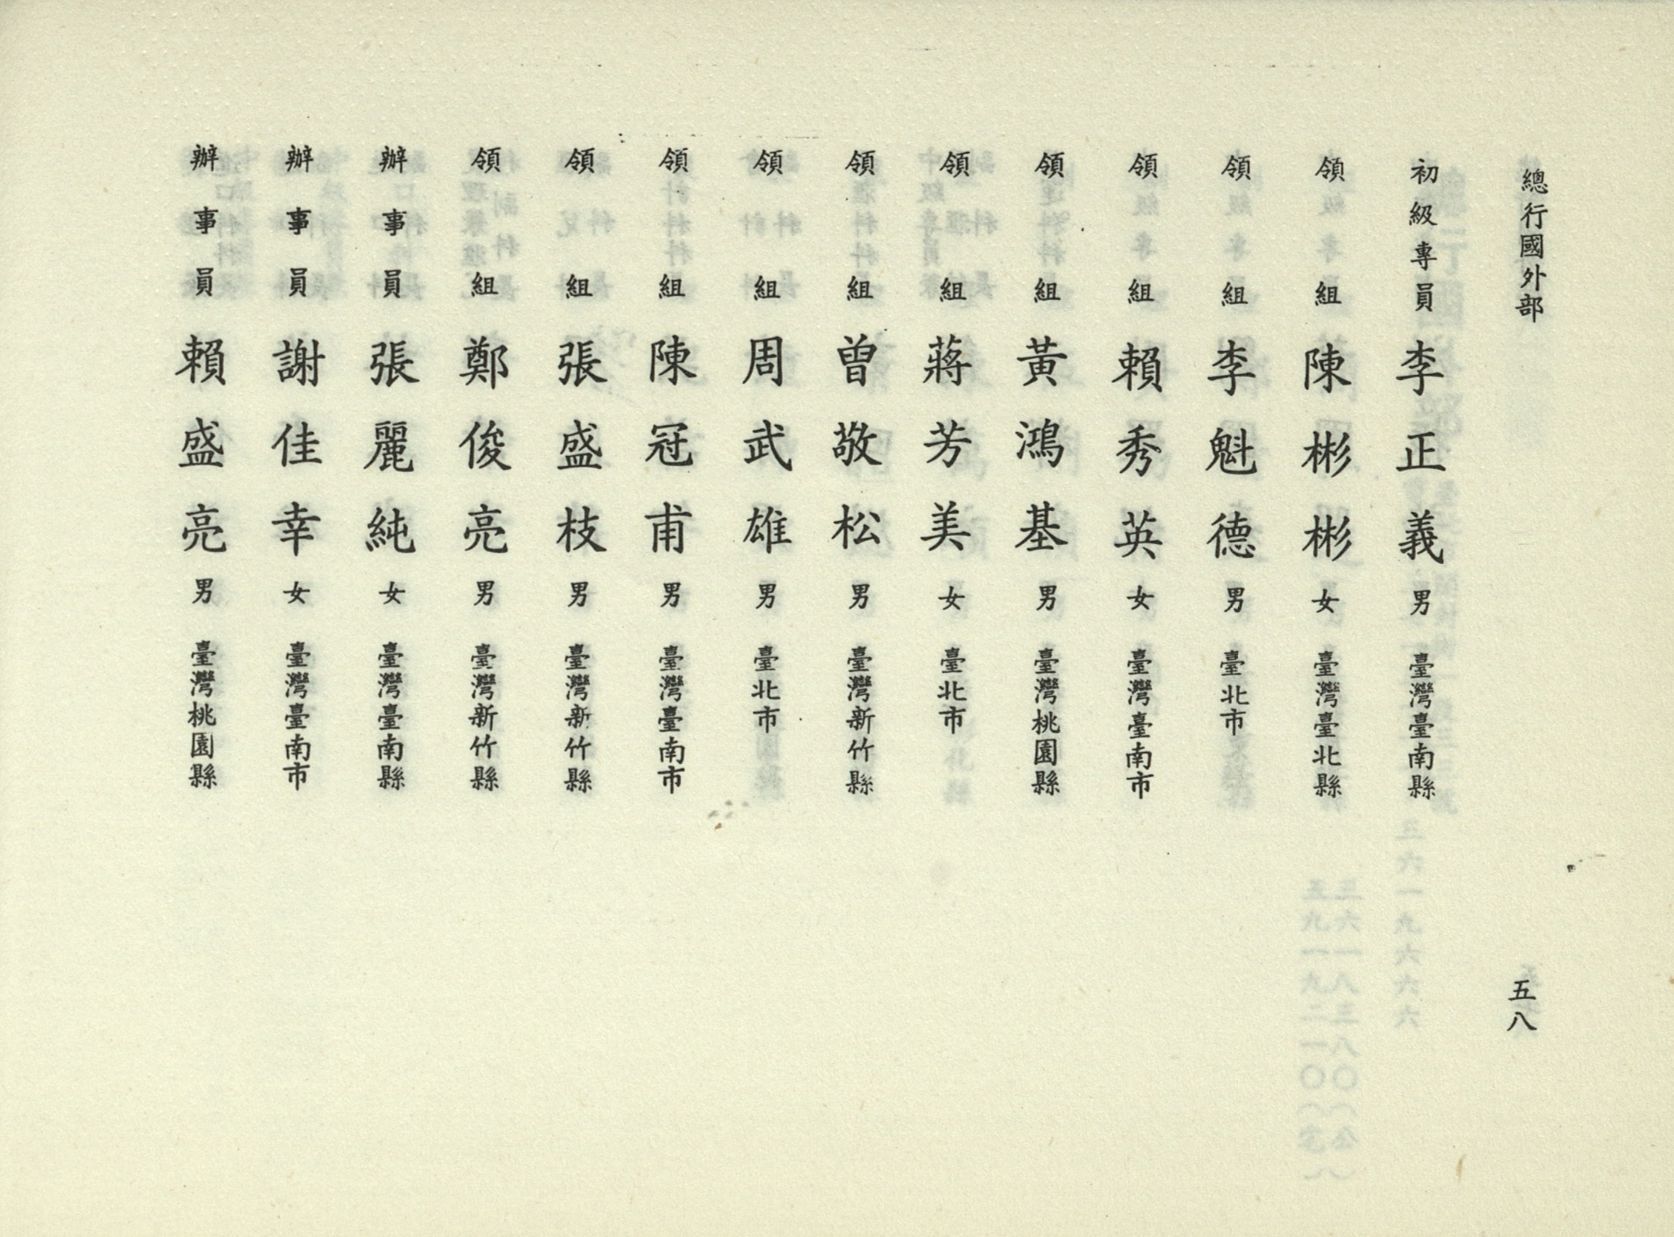 總行國外部
五八
初級專員 李正義 男 臺灣臺南縣
領組 陳彬彬 女 臺灣臺北縣
領組 李魁德 男 臺北市
領組 賴秀英 女 臺灣臺南市
領組 黃鴻基 男 臺灣桃園縣
領組 蔣芳美 女 臺北市
領組 曾敬松 男 臺灣新竹縣
領組 周武雄 男 臺北市
領組 陳冠甫 男 臺灣臺南市
領組 張盛枝 男 臺灣新竹縣
領組 鄭俊亮 男 臺灣新竹縣
辦事員 張麗純 女 臺灣臺南縣
辦事員 謝佳幸 女 臺灣臺南市
辦事員 賴盛亮 男 臺灣桃園縣